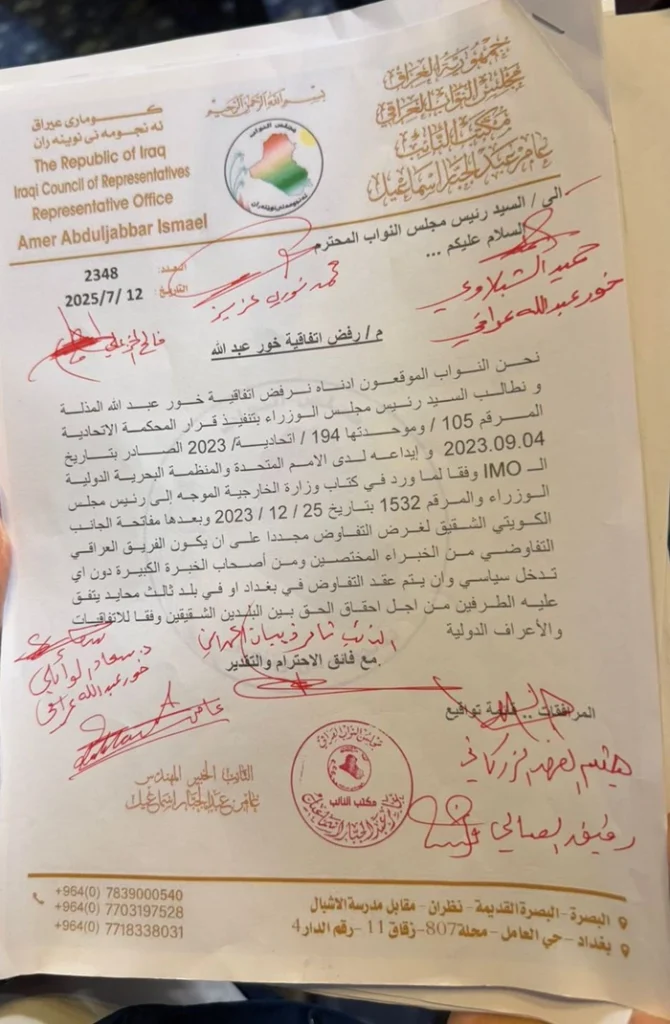 جمهورية العراق
مجلس النواب العراقي
مكتب النائب
عامر عبد الجبار اسماعيل
بسم الله الرحمن الرحيم
مجلس النواب
كۆماری عیراق
ئه نجومه نی نوینه ران
The Republic of Iraq
Iraqi Council of Representatives
Representative Office
Amer Abduljabbar Ismael
العدد: 2348
التاريخ: 2025/7/ 12
الى / السيد رئيس مجلس النواب المحترم
السلام عليكم ...
محمد نوري عزيز
حميد الشبلاوي
خور عبدالله عراقي
فالح الخزعلي
م / رفض اتفاقية خور عبد الله
نحن النواب الموقعون ادناه نرفض اتفاقية خور عبد الله المذلة
و نطالب السيد رئيس مجلس الوزراء بتنفيذ قرار المحكمة الاتحادية
المرقم 105 / وموحدتها 194 / اتحادية/ 2023 الصادر بتاريخ
2023.09.04 و إيداعه لدى الامم المتحدة والمنظمة البحرية الدولية
الـ IMO وفقا لما ورد في كتاب وزارة الخارجية الموجه إلى رئيس مجلس
الوزراء والمرقم 1532 بتاريخ 25 / 12 / 2023 وبعدها مفاتحة الجانب
الكويتي الشقيق لغرض التفاوض مجددا على ان يكون الفريق العراقي
التفاوضي من الخبراء المختصين ومن أصحاب الخبرة الكبيرة دون أي
تدخل سياسي وان يتم عقد التفاوض في بغداد او في بلد ثالث محايد يتفق
عليه الطرفين من اجل احقاق الحق بين البلدين الشقيقين وفقا للاتفاقيات
والأعراف الدولية
النائب ثامر ذيبان الحمداني
.مع فائق الاحترام والتقدير
د. سعاد الوائلي
خور عبدالله عراقي
المرافقات .. قائمة تواقيع
عامر
هيثم الفهد الزركاني
رفيق الصالحي
النائب الخبير المهندس
عامر عبد الجبار اسماعيل
مجلس النواب العراقي
مكتب النائب
عامر عبد الجبار اسماعيل
+964(0) 7839000540
+964(0) 7703197528
+964(0) 7718338031
البصرة - البصرة القديمة - نظران - مقابل مدرسة الاشبال
بغداد - حي العامل - محلة 807 - زقاق 11 - رقم الدار 4